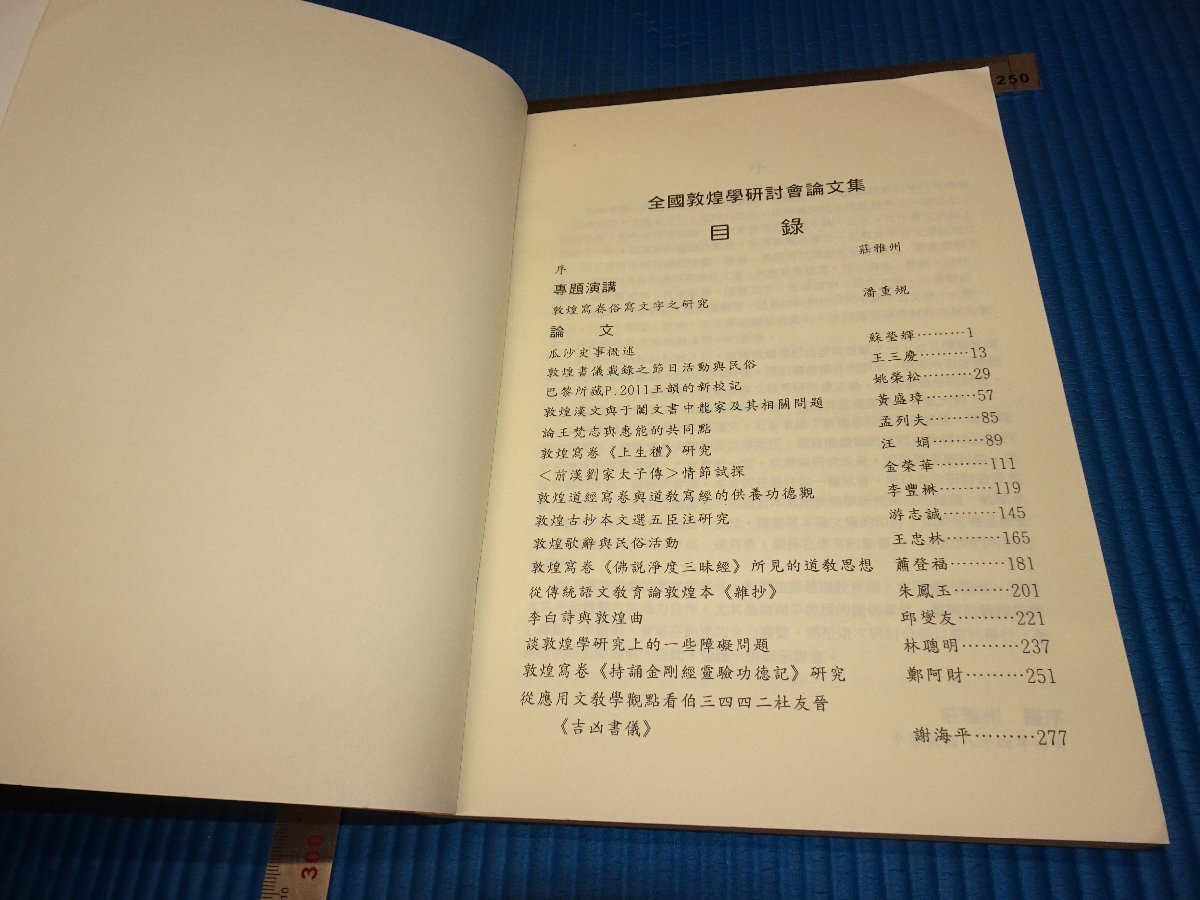 250
全國敦煌學研討會論文集
目 錄
序 莊雅州
專題演講
敦煌寫卷俗寫文字之研究 潘重規
論 文
瓜沙史事概述 蘇瑩輝………1
敦煌書儀載錄之節日活動與民俗 王三慶………13
巴黎所藏P.2011王韻的新校記 姚榮松………29
敦煌漢文與于闐文書中龍家及其相關問題 黃盛璋………57
論王梵志與惠能的共同點 孟列夫………85
敦煌寫卷《上生禮》研究 汪 娟………89
＜前漢劉家太子傳＞情節試探 金榮華………111
敦煌道經寫卷與道教寫經的供養功德觀 李豐楙………119
敦煌古抄本文選五臣注研究 游志誠………145
敦煌歌辭與民俗活動 王忠林………165
敦煌寫卷《佛說淨度三昧經》所見的道教思想 蕭登福………181
從傳統語文教育論敦煌本《雜抄》 朱鳳玉………201
李白詩與敦煌曲 邱燮友………221
談敦煌學研究上的一些障礙問題 林聰明………237
敦煌寫卷《持誦金剛經靈驗功德記》研究 鄭阿財………251
從應用文教學觀點看伯三四四二杜友晉
《吉凶書儀》 謝海平………277
300
10